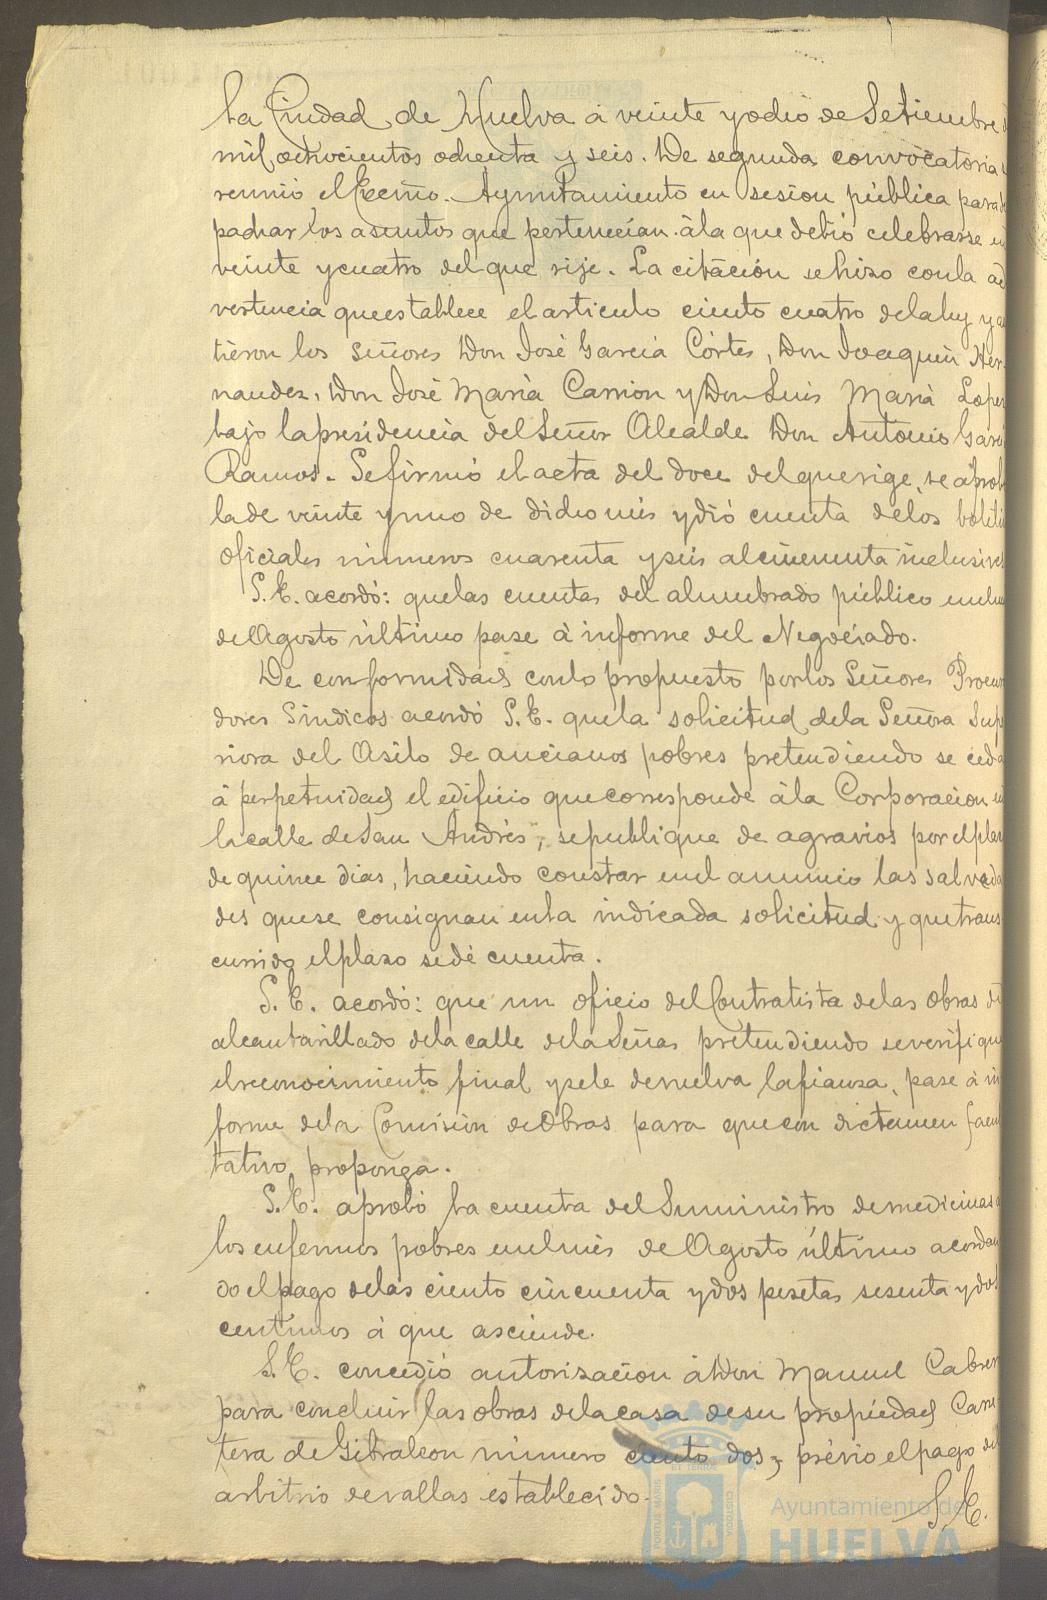 la Ciudad de Huelva á veinte y ocho de Setiembre de
mil ochocientos ochenta y seis. De segunda convocatoria
reunió el Excmo. Ayuntamiento en sesion pública para
pachar los asuntos que pertenecian á la que debió celebrarse en
veinte y cuatro del que rije. La citación se hizo con la ad
vertencia que establece el articulo ciento cuatro de la ley y
tieron los Señores Don José Garcia Córtes, Don Joaquin Her
nandez, Don José Maria Carrion y Don Luis Maria Lopez
bajo la presidencia del Señor Alcalde Don Antonio Garc
Ramos. Se firmó el acta del doce del que rige, se aprob
la de veinte y uno de dicho mes y dió cuenta de los boleti
oficiales números cuarenta y seis al cincuenta inclusives
S. E. acordó: que las cuentas del alumbrado público en el
de Agosto último pase á informe del Negociado.
De conformidad con lo propuesto por los Señores Procura
dores Sindicos acordó S. E. que la solicitud de la Señora Supe
riora del Asilo de ancianos pobres pretendiendo se ceda
á perpetuidad el edificio que corresponde á la Corporacion en
la calle de San Andrés, se publique de agravios por el plazo
de quince dias, haciendo constar en el anuncio las salveda
des que se consignan en la indicada solicitud y que trans
currido el plazo se dé cuenta.
S. E. acordó: que un oficio del Contratista de las obras de
alcantarillado de la calle de la Señas pretendiendo se verifique
el reconocimiento final y se le devuelva la fianza, pase á in
forme de la Comision de Obras para que con dictamen facul
tativo proponga.
S. E. aprobó la cuenta del Suministro de medicinas á
los enfermos pobres en el mes de Agosto último acordan
do el pago de las ciento cincuenta y dos pesetas sesenta y dos
centimos á que asciende.
S. E. concedió autorizacion á Don Manuel Cabrer
para concluir las obras de la casa de su propiedad Carre
tera de Gibraleon número ciento dos, prévio el pago del
arbitrio de vallas establecido.
S. E.
Ayuntamiento de
HUELVA